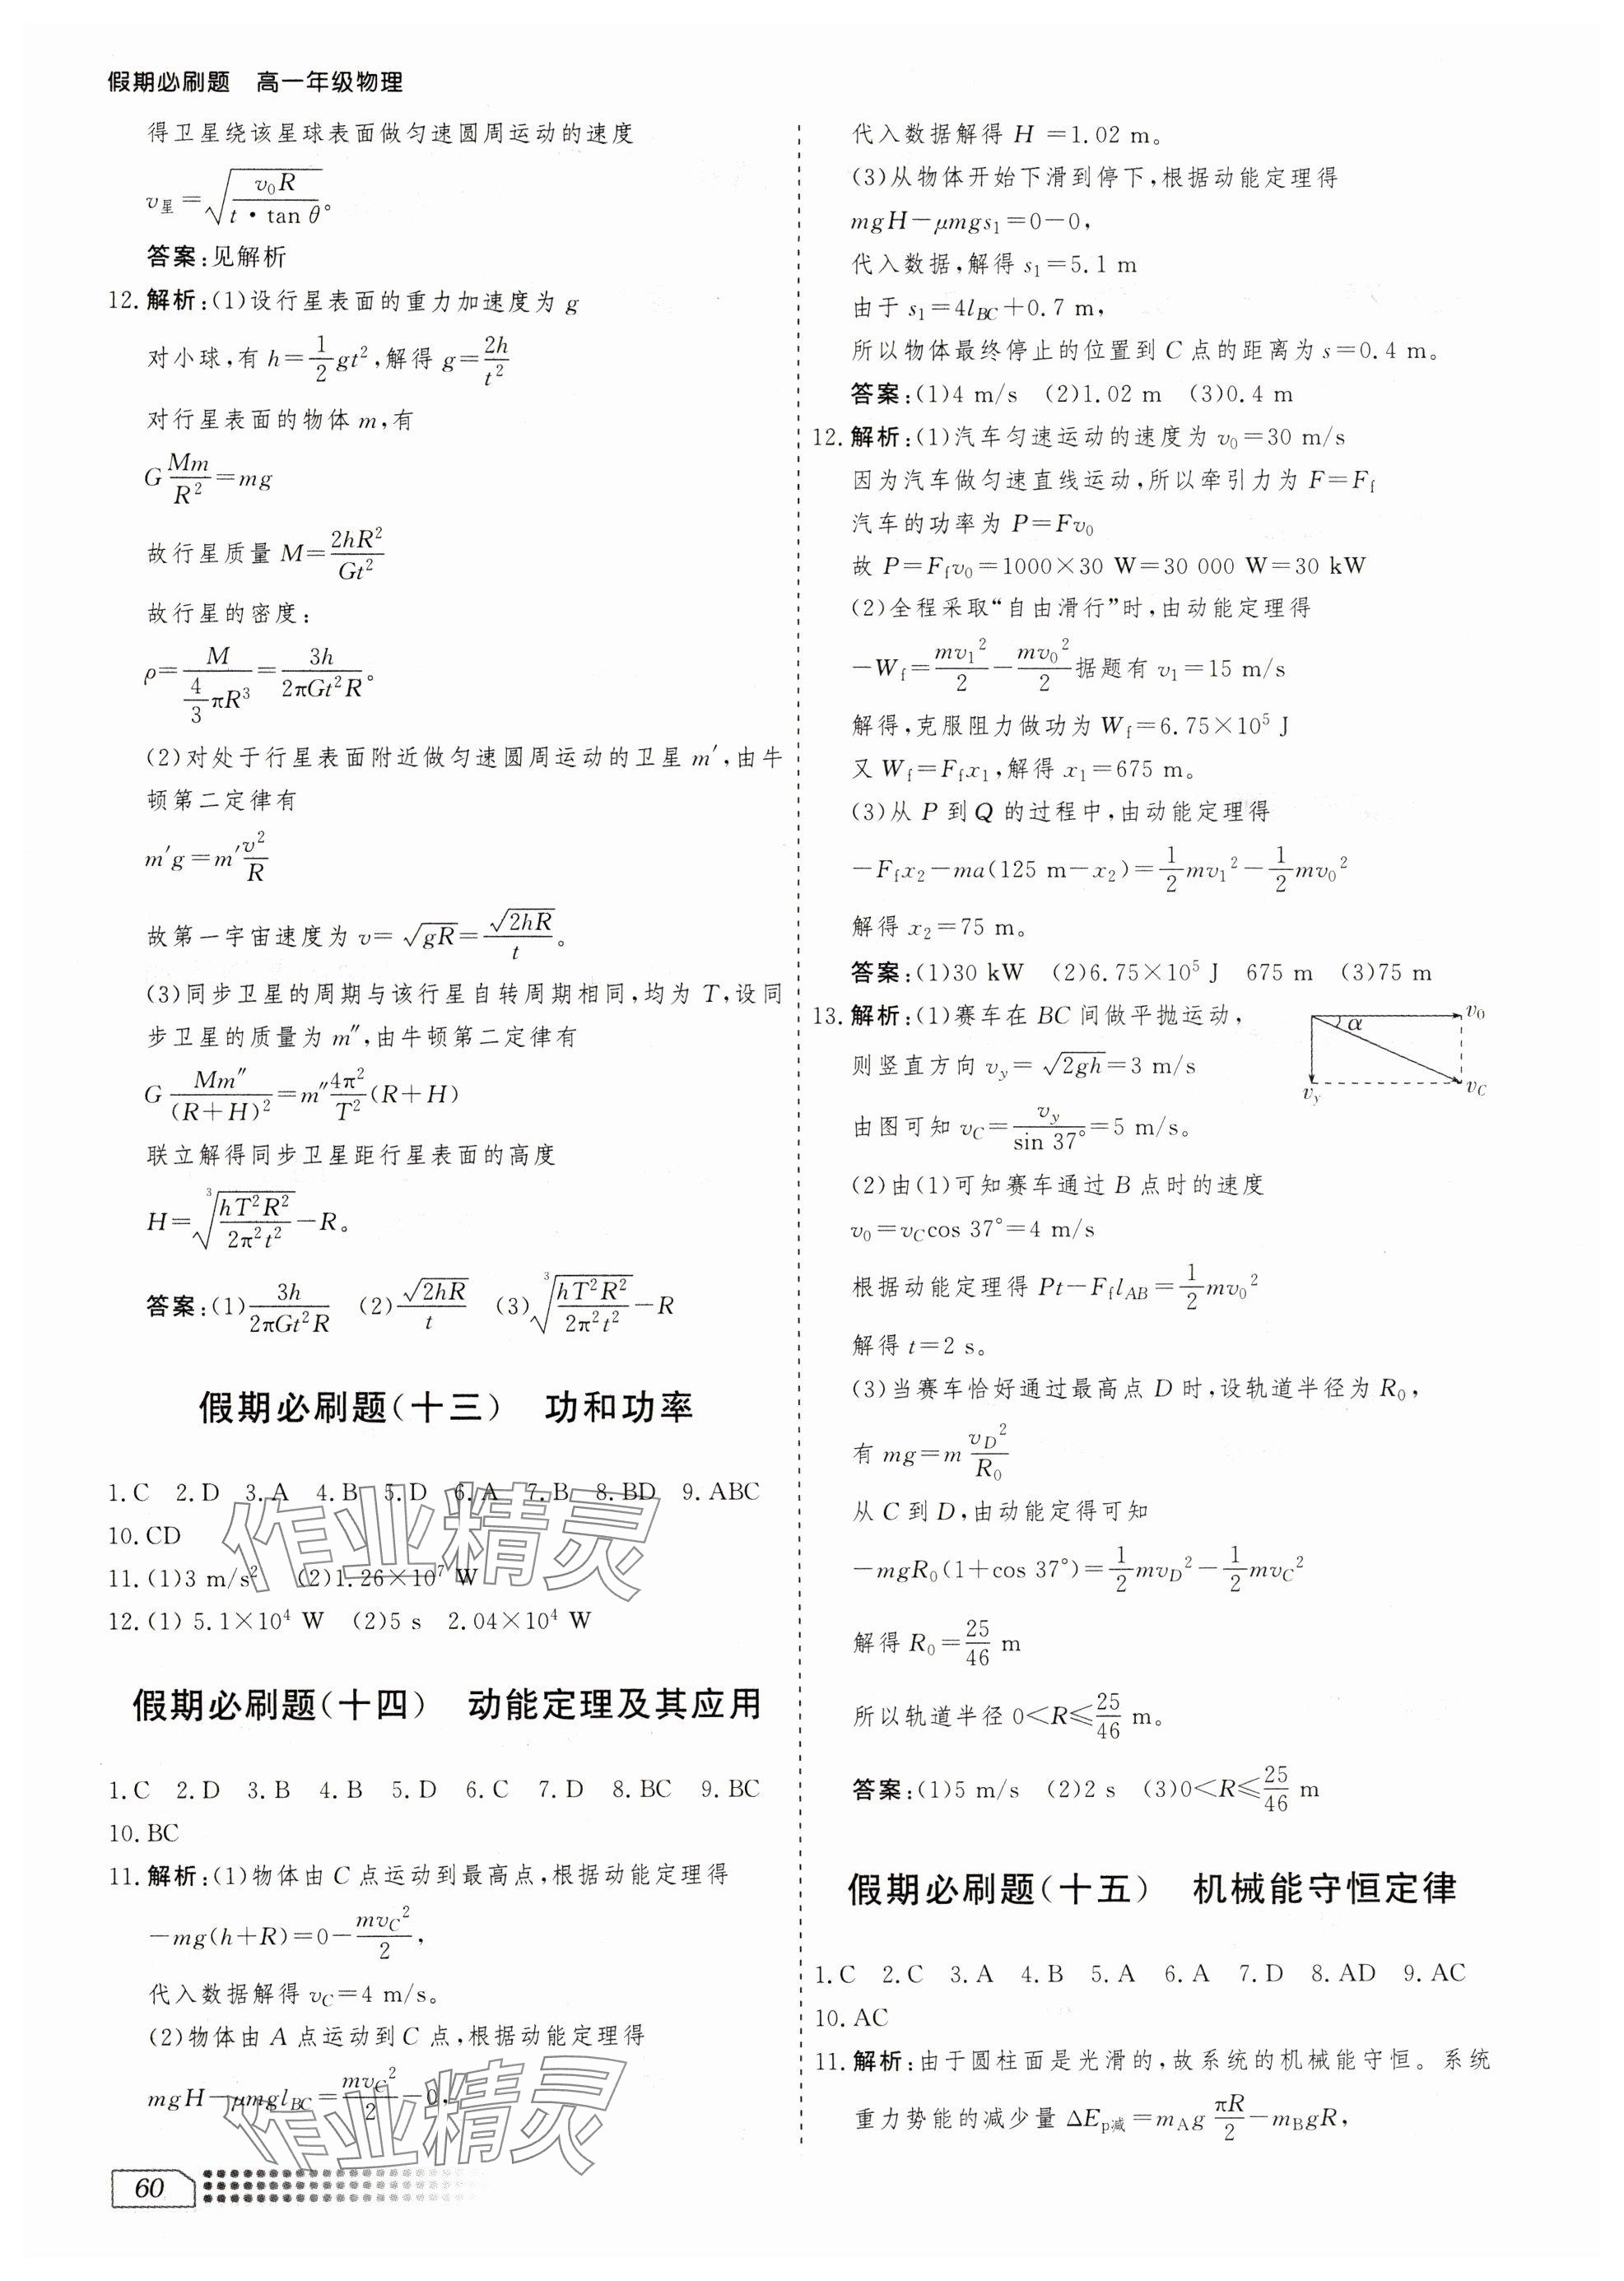 假期必刷题 高一年级物理
得卫星绕该星球表面做匀速圆周运动的速度
v星=√(v₀R/(t·tan θ))。
答案:见解析
12. 解析:(1)设行星表面的重力加速度为 g
对小球,有 h=1/2 gt²,解得 g=2h/t²
对行星表面的物体 m,有
G Mm/R²=mg
故行星质量 M=2hR²/Gt²
故行星的密度:
ρ=M/(4/3 πR³)=3h/(2πGt²R)。
(2)对处于行星表面附近做匀速圆周运动的卫星 m′,由牛
顿第二定律有
m′g=m′v²/R
故第一宇宙速度为 v=√gR=√2hR/t。
(3)同步卫星的周期与该行星自转周期相同,均为 T,设同
步卫星的质量为 m″,由牛顿第二定律有
G Mm″/(R+H)²=m″4π²/T²(R+H)
联立解得同步卫星距行星表面的高度
H=∛(hT²R²/2π²t²)-R。
答案:(1)3h/2πGt²R (2)√2hR/t (3)∛(hT²R²/2π²t²)-R
假期必刷题(十三) 功和功率
1. C 2. D 3. A 4. B 5. D 6. A 7. B 8. BD 9. ABC
10. CD
11. (1)3 m/s² (2)1.26×10⁷ W
12. (1) 5.1×10⁴ W (2)5 s 2.04×10⁴ W
假期必刷题(十四) 动能定理及其应用
1. C 2. D 3. B 4. B 5. D 6. C 7. D 8. BC 9. BC
10. BC
11. 解析:(1)物体由 C 点运动到最高点,根据动能定理得
-mg(h+R)=0-mv_C²/2,
代入数据解得 v_C=4 m/s。
(2)物体由 A 点运动到 C 点,根据动能定理得
mgH-μmgl_BC=mv_C²/2-0,
代入数据解得 H=1.02 m。
(3)从物体开始下滑到停下,根据动能定理得
mgH-μmgs₁=0-0,
代入数据,解得 s₁=5.1 m
由于 s₁=4l_BC+0.7 m,
所以物体最终停止的位置到 C 点的距离为 s=0.4 m。
答案:(1)4 m/s (2)1.02 m (3)0.4 m
12. 解析:(1)汽车匀速运动的速度为 v₀=30 m/s
因为汽车做匀速直线运动,所以牵引力为 F=F_f
汽车的功率为 P=Fv₀
故 P=F_fv₀=1000×30 W=30 000 W=30 kW
(2)全程采取“自由滑行”时,由动能定理得
-W_f=mv₁²/2-mv₀²/2据题有 v₁=15 m/s
解得,克服阻力做功为 W_f=6.75×10⁵ J
又 W_f=F_fx₁,解得 x₁=675 m。
(3)从 P 到 Q 的过程中,由动能定理得
-F_fx₂-ma(125 m-x₂)=1/2 mv₁²-1/2 mv₀²
解得 x₂=75 m。
答案:(1)30 kW (2)6.75×10⁵ J 675 m (3)75 m
13. 解析:(1)赛车在 BC 间做平抛运动,
则竖直方向 v_y=√2gh=3 m/s
由图可知 v_C=v_y/sin 37°=5 m/s。
v₀
α
v_y
v_C
(2)由(1)可知赛车通过 B 点时的速度
v₀=v_Ccos 37°=4 m/s
根据动能定理得 Pt-F_fl_AB=1/2 mv₀²
解得 t=2 s。
(3)当赛车恰好通过最高点 D 时,设轨道半径为 R₀,
有 mg=m v_D²/R₀
从 C 到 D,由动能定得可知
-mgR₀(1+cos 37°)=1/2 mv_D²-1/2 mv_C²
解得 R₀=25/46 m
所以轨道半径 0<R≤25/46 m。
答案:(1)5 m/s (2)2 s (3)0<R≤25/46 m
假期必刷题(十五) 机械能守恒定律
1. C 2. C 3. A 4. B 5. A 6. A 7. D 8. AD 9. AC
10. AC
11. 解析:由于圆柱面是光滑的,故系统的机械能守恒。系统
重力势能的减少量 ΔE_p减=m_Ag πR/2-m_BgR,
60
作业精灵
作业精灵